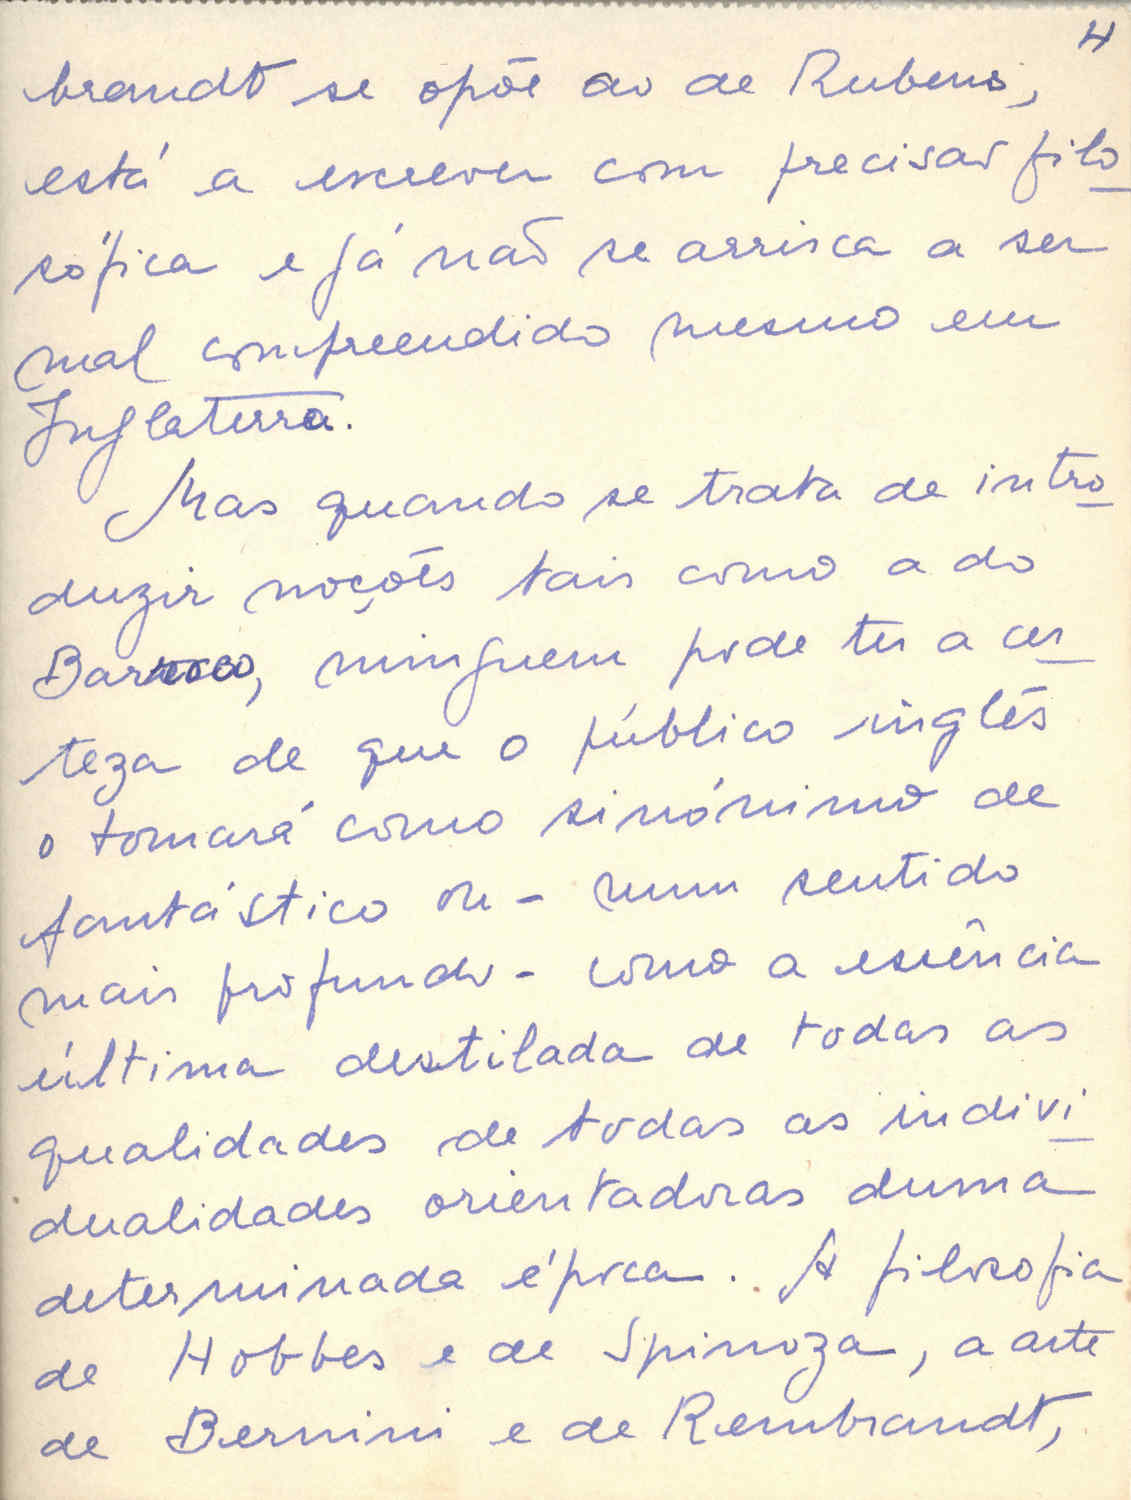 4
brandt se opõe ao de Rubens,
está a escrever com precisão filo
sófica e já não se arrisca a ser
mal compreendido mesmo em
Inglaterra.
Mas quando se trata de intro
duzir noções tais como a do
Barroco, ninguem pode ter a cer
teza de que o público inglês
o tomará como sinónimo de
fantástico ou - num sentido
mais profundo - como a essência
última destilada de todas as
qualidades de todas as indivi
dualidades orientadoras duma
determinada época. A filosofia
de Hobbes e de Spinoza, a arte
de Bernini e de Rembrandt,